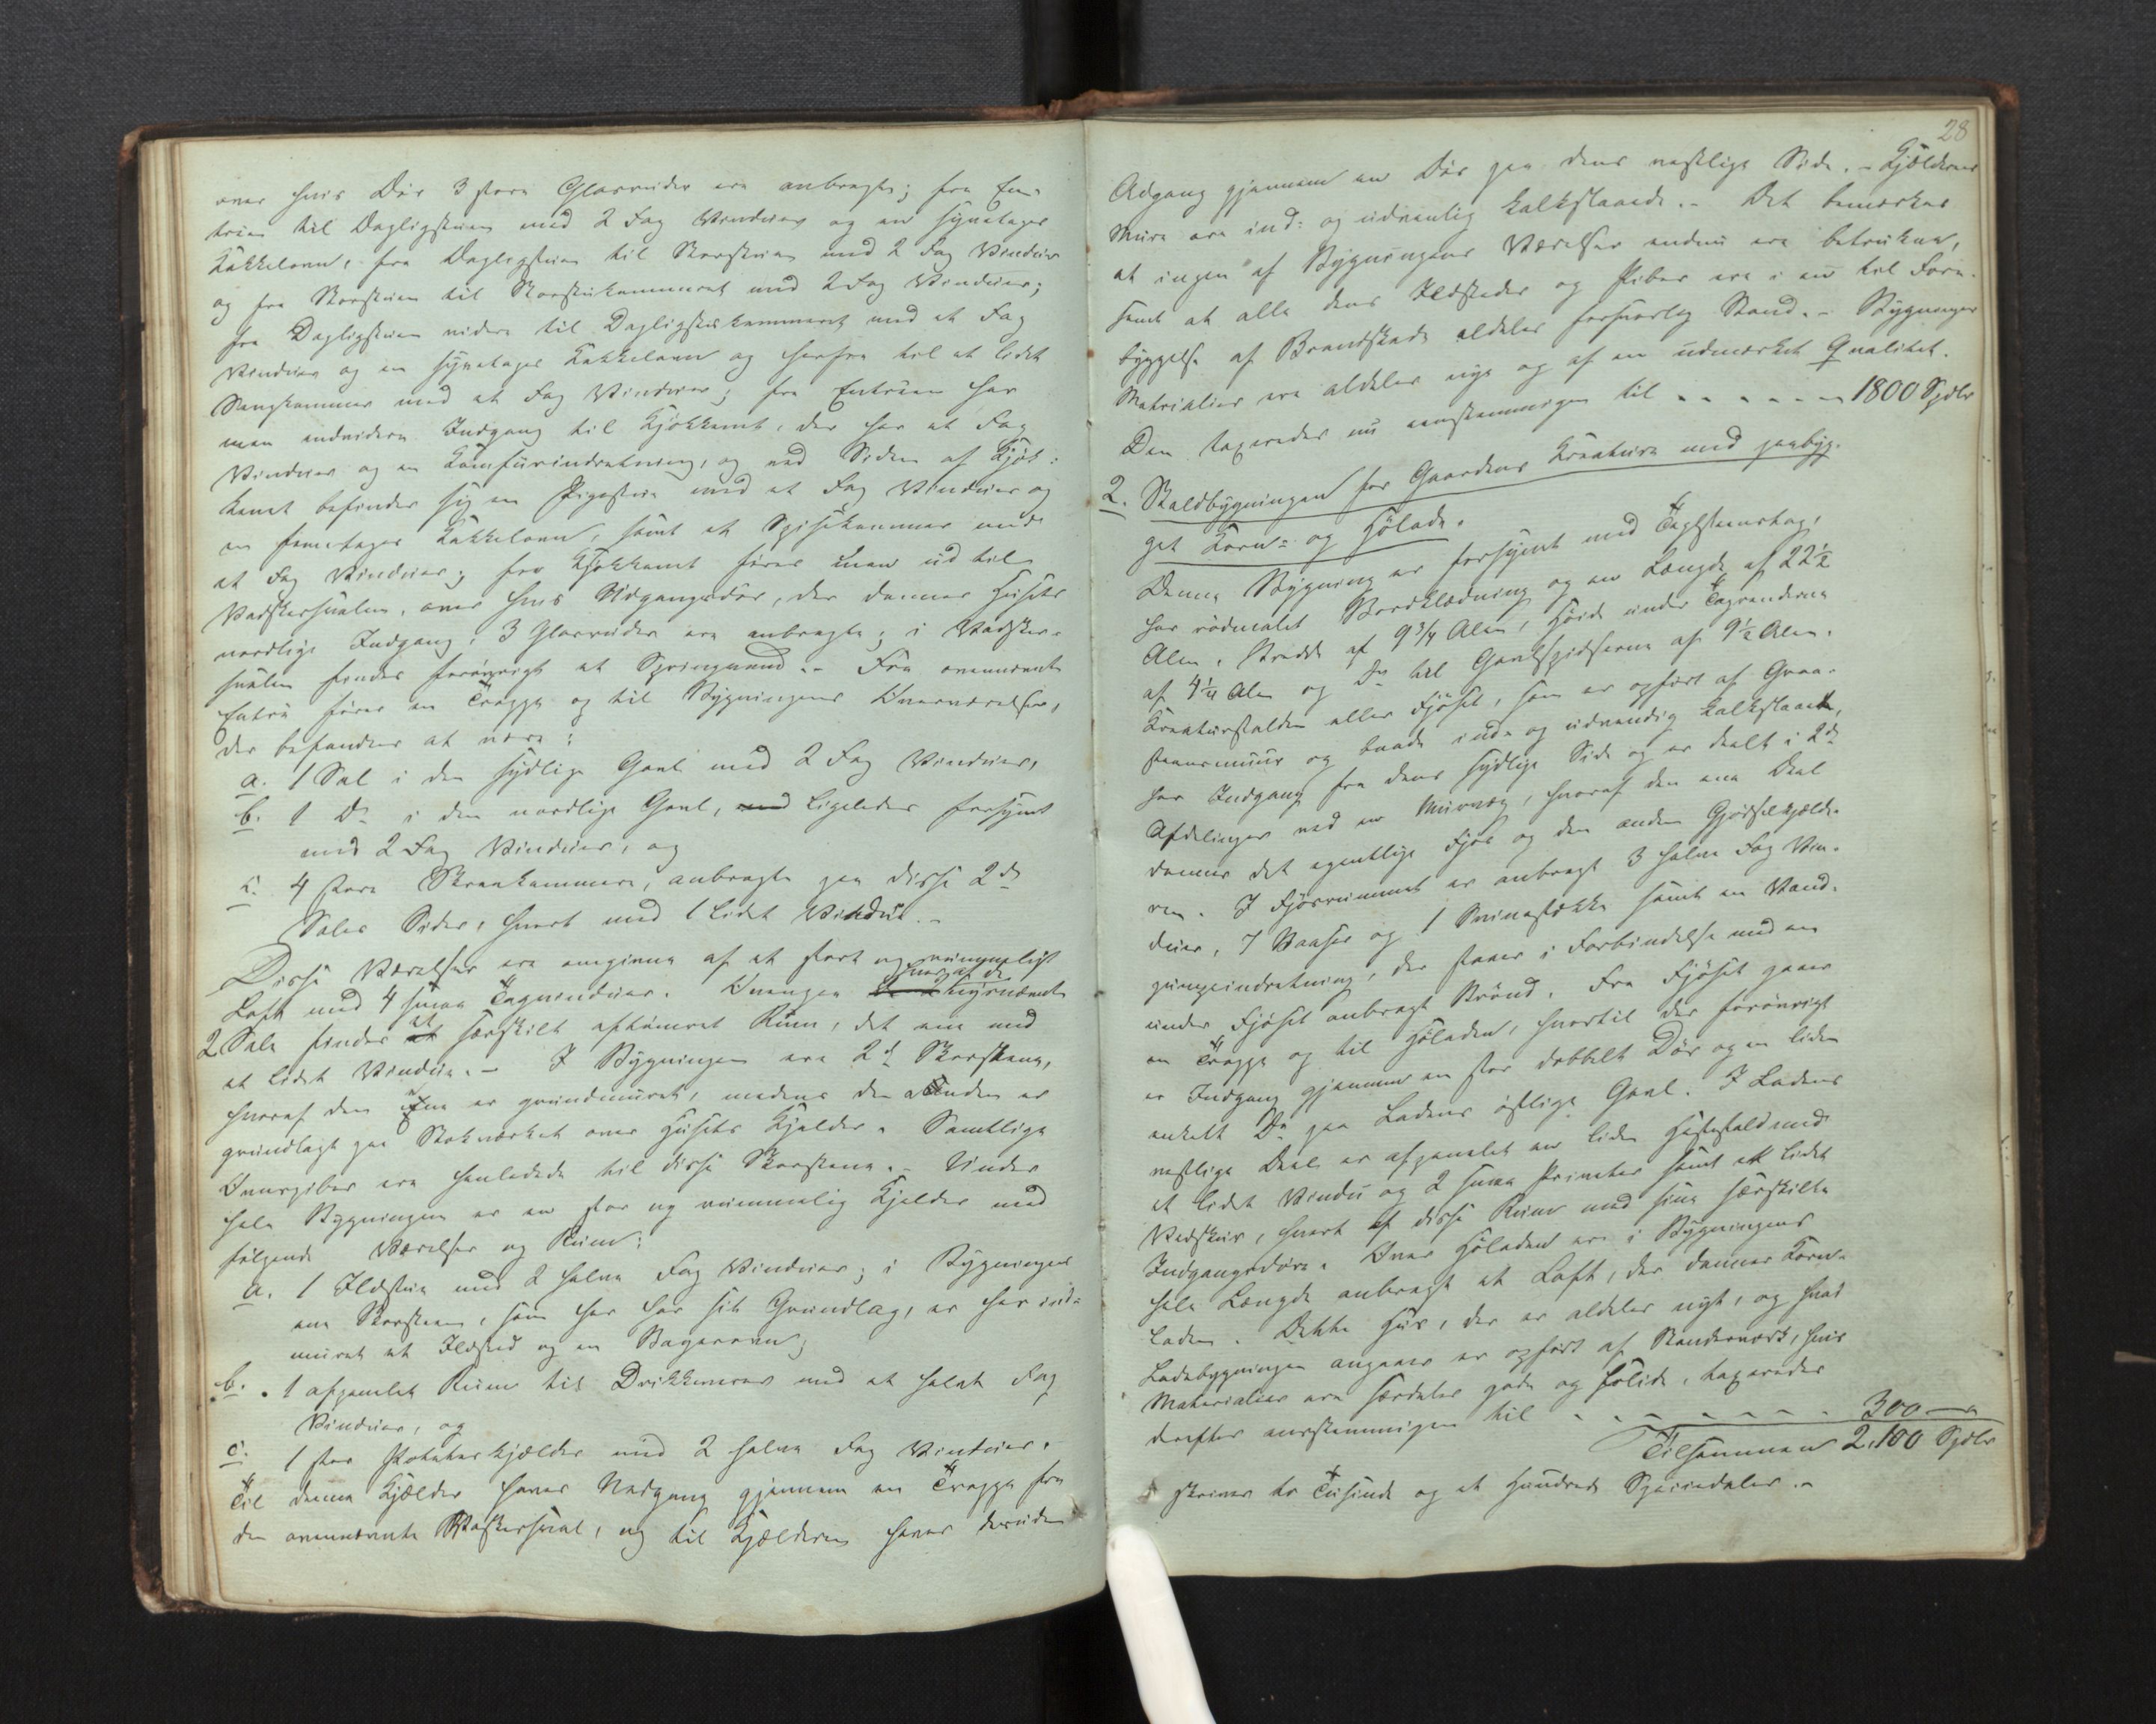 over hvis Dör 3 store Glasruder ere anbragte; fra En-
treen til Dagligstuen med 2 Fag Vinduer og en tyeetages
Kakkelovn, fra Dagligstuen til Storstuen med 2 Fag Vinduer
og fra Storstuen til Storstukammeret med 2 Fag Vinduer;
fra Dagligstuen videre til Dagligstukammeret med et Fag
Vinduer og en tyeetages Kakkelovn og herfra til et lidet
Sengkammer med et Fag Vinduer; fra Entreen har
man endvidere Indgang til Kjökkenet, der har et Fag
Vinduer og en Komfurindretning, og ved Siden af Kjök-
kenet befinder sig en Pigestue med et Fag Vinduer og
en femetages Kakkelovn, samt et Spisekammer med
et Fag Vinduer; fra Kjökkenet föres man ud til
Vadskersvalen, over hvis Udgangsdör, der danner Husets
nordlige Indgang, 3 Glasruder ere anbragte; i Vadsker-
svalen findes forövrigt et Springvand. - Fra ovennævnte
Entré förer en Trappe op til Bygningens Overværelser,
der befandtes at være:
a. 1 Sal i den sydlige Gavl med 2 Fag Vinduer,
b. 1 Do i den nordlige Gavl, med ligeledes forsynet
med 2 Fag Vinduer, og
c. 4 store Skraakammere, anbragte paa disse 2de
Salers Sider, hvert med 1 lidet Vindue. -
Disse Værelser ere omgivne af et stort og rummeligt
Loft med 4 smaa Tagvinduer. Ovenpaa hver af de nysnævnte
2 Sale findes et særskilt aftömret Rum, det ene med
et lidet Vindue. - I Bygningen ere 2de Skorstene,
hvoraf den Ene er grundmuret, medens den Anden er
grundlagt paa Stokværket over Husets Kjelder. Samtlige
Ovnspiber ere henledede til disse Skorstene. - Under
hele Bygningen er en stor og rummelig Kjelder med
fölgende Værelser og Rum:
a. 1 Ildstue med 2 halve Fag Vinduer; i Bygningens
ene Skorsteen, som her har sit Grundlag, er her ind-
muret et Ildsted og en Bagerovn;
b. 1 afpanelet Rum til Drikkevarer med et halvt Fag
Vinduer, og
c. 1 stor Potetkjælder med 2 halve Fag Vinduer.
Til denne Kjælder haves Nedgang gjennem en Trappe fra
den ovennævnte Vaskersval, og til Kjælderen haves desuden
28
Adgang gjennem en Dör paa dens vestlige Side. - Kjælderens
Mure ere ind- og udvendig kalkslaaede. - Det bemærkes
at ingen af Bygningens Værelser endnu ere betrukne,
samt at alle dens Ildsteder og Piber ere i en til Fore-
byggelse af Brandskade aldeles forsvarlig Stand. - Bygningens
Materialier ere aldeles nye og af en udmærket Qvalitet.
Den taxeredes nu eenstemmigen til - - - - - - 1800 Spdlr
2. Staldbygningen for Gaardens Kreature med paabyg-
get Korn- og Hölade.
Denne Bygning er forsynet med Taglsteenstag,
har rödmalet Bordklædning og en Længde af 22½
Alen, Bredde af 9¾ Alen, Höide under Tagrenderne
af 4¼ Alen og Do til Gavlspidserne af 9½ Alen.
Kreaturstalden eller Fjöset, som er opfört af Graa-
steensmuur og baade ind- og udvendig kalkslaaet,
har Indgang fra dens sydlige Side og er deelt i 2de
Afdelinger ved en Murvæg, hvoraf den ene Deel
danner det egentlige Fjös og den anden Gjödselkjælde-
ren. I Fjösrummet er anbragt 3 halve Fag Vin-
duer, 7 Baaser og 1 Svinestikke samt en Vand-
pumpeindretning, der staaer i Forbindelse med en
under Fjöset anbragt Brönd. Fra Fjöset gaaer
en Trappe op til Höladen, hvortil der forövrigt
er Indgang gjennem en stor dobbelt Dör og en liden
enkelt Do paa Ladens östlige Gavl. I Ladens
vestlige Deel er afpanelet en liden Hestestald med
et lidet Vindu og 2 smaa Priveter samt et lidet
Vedskur, hvert af disse Rum med sine særskilte
Indgangsdöre. Over Höladen ere i Bygningens
hele Længde anbragt et Loft, der danner Korn-
laden. Dette Huus, der er aldeles nyt, og hvad
Ladebygningen angaaer er opfört af Stenderværk, hvis
Materialier ere særdeles gode og solide, taxeredes
derefter eenstemmigen til - - - - - - - 300 —
Tilsammen 2,100 Spdlr
skriver to Tusinde og et Hundrede Speciedaler. -